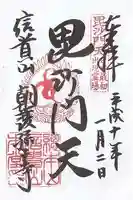 奉拝
平成十年
一月二日
毘沙門天
信貴山
朝護孫子寺